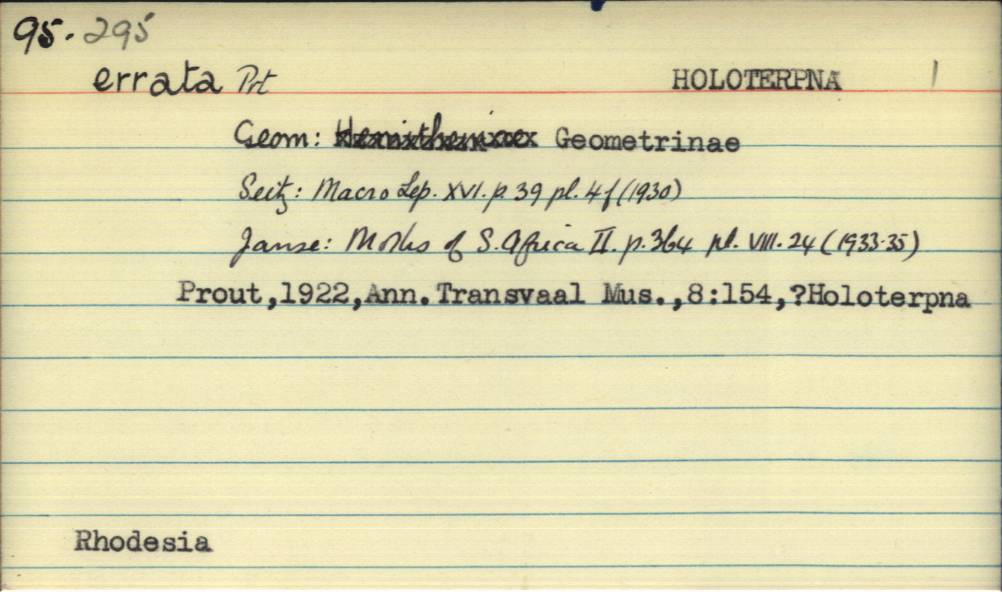 95. 295
errata Prt HOLOTERPNA 1
Geom: Hemitheinae Geometrinae
Seitz: Macro Lep. XVI. p. 39 pl. 4f (1930)
Janse: Moths of S. Africa II. p. 364 pl. VIII. 24 (1933-35)
Prout,1922,Ann.Transvaal Mus.,8:154,?Holoterpna
Rhodesia